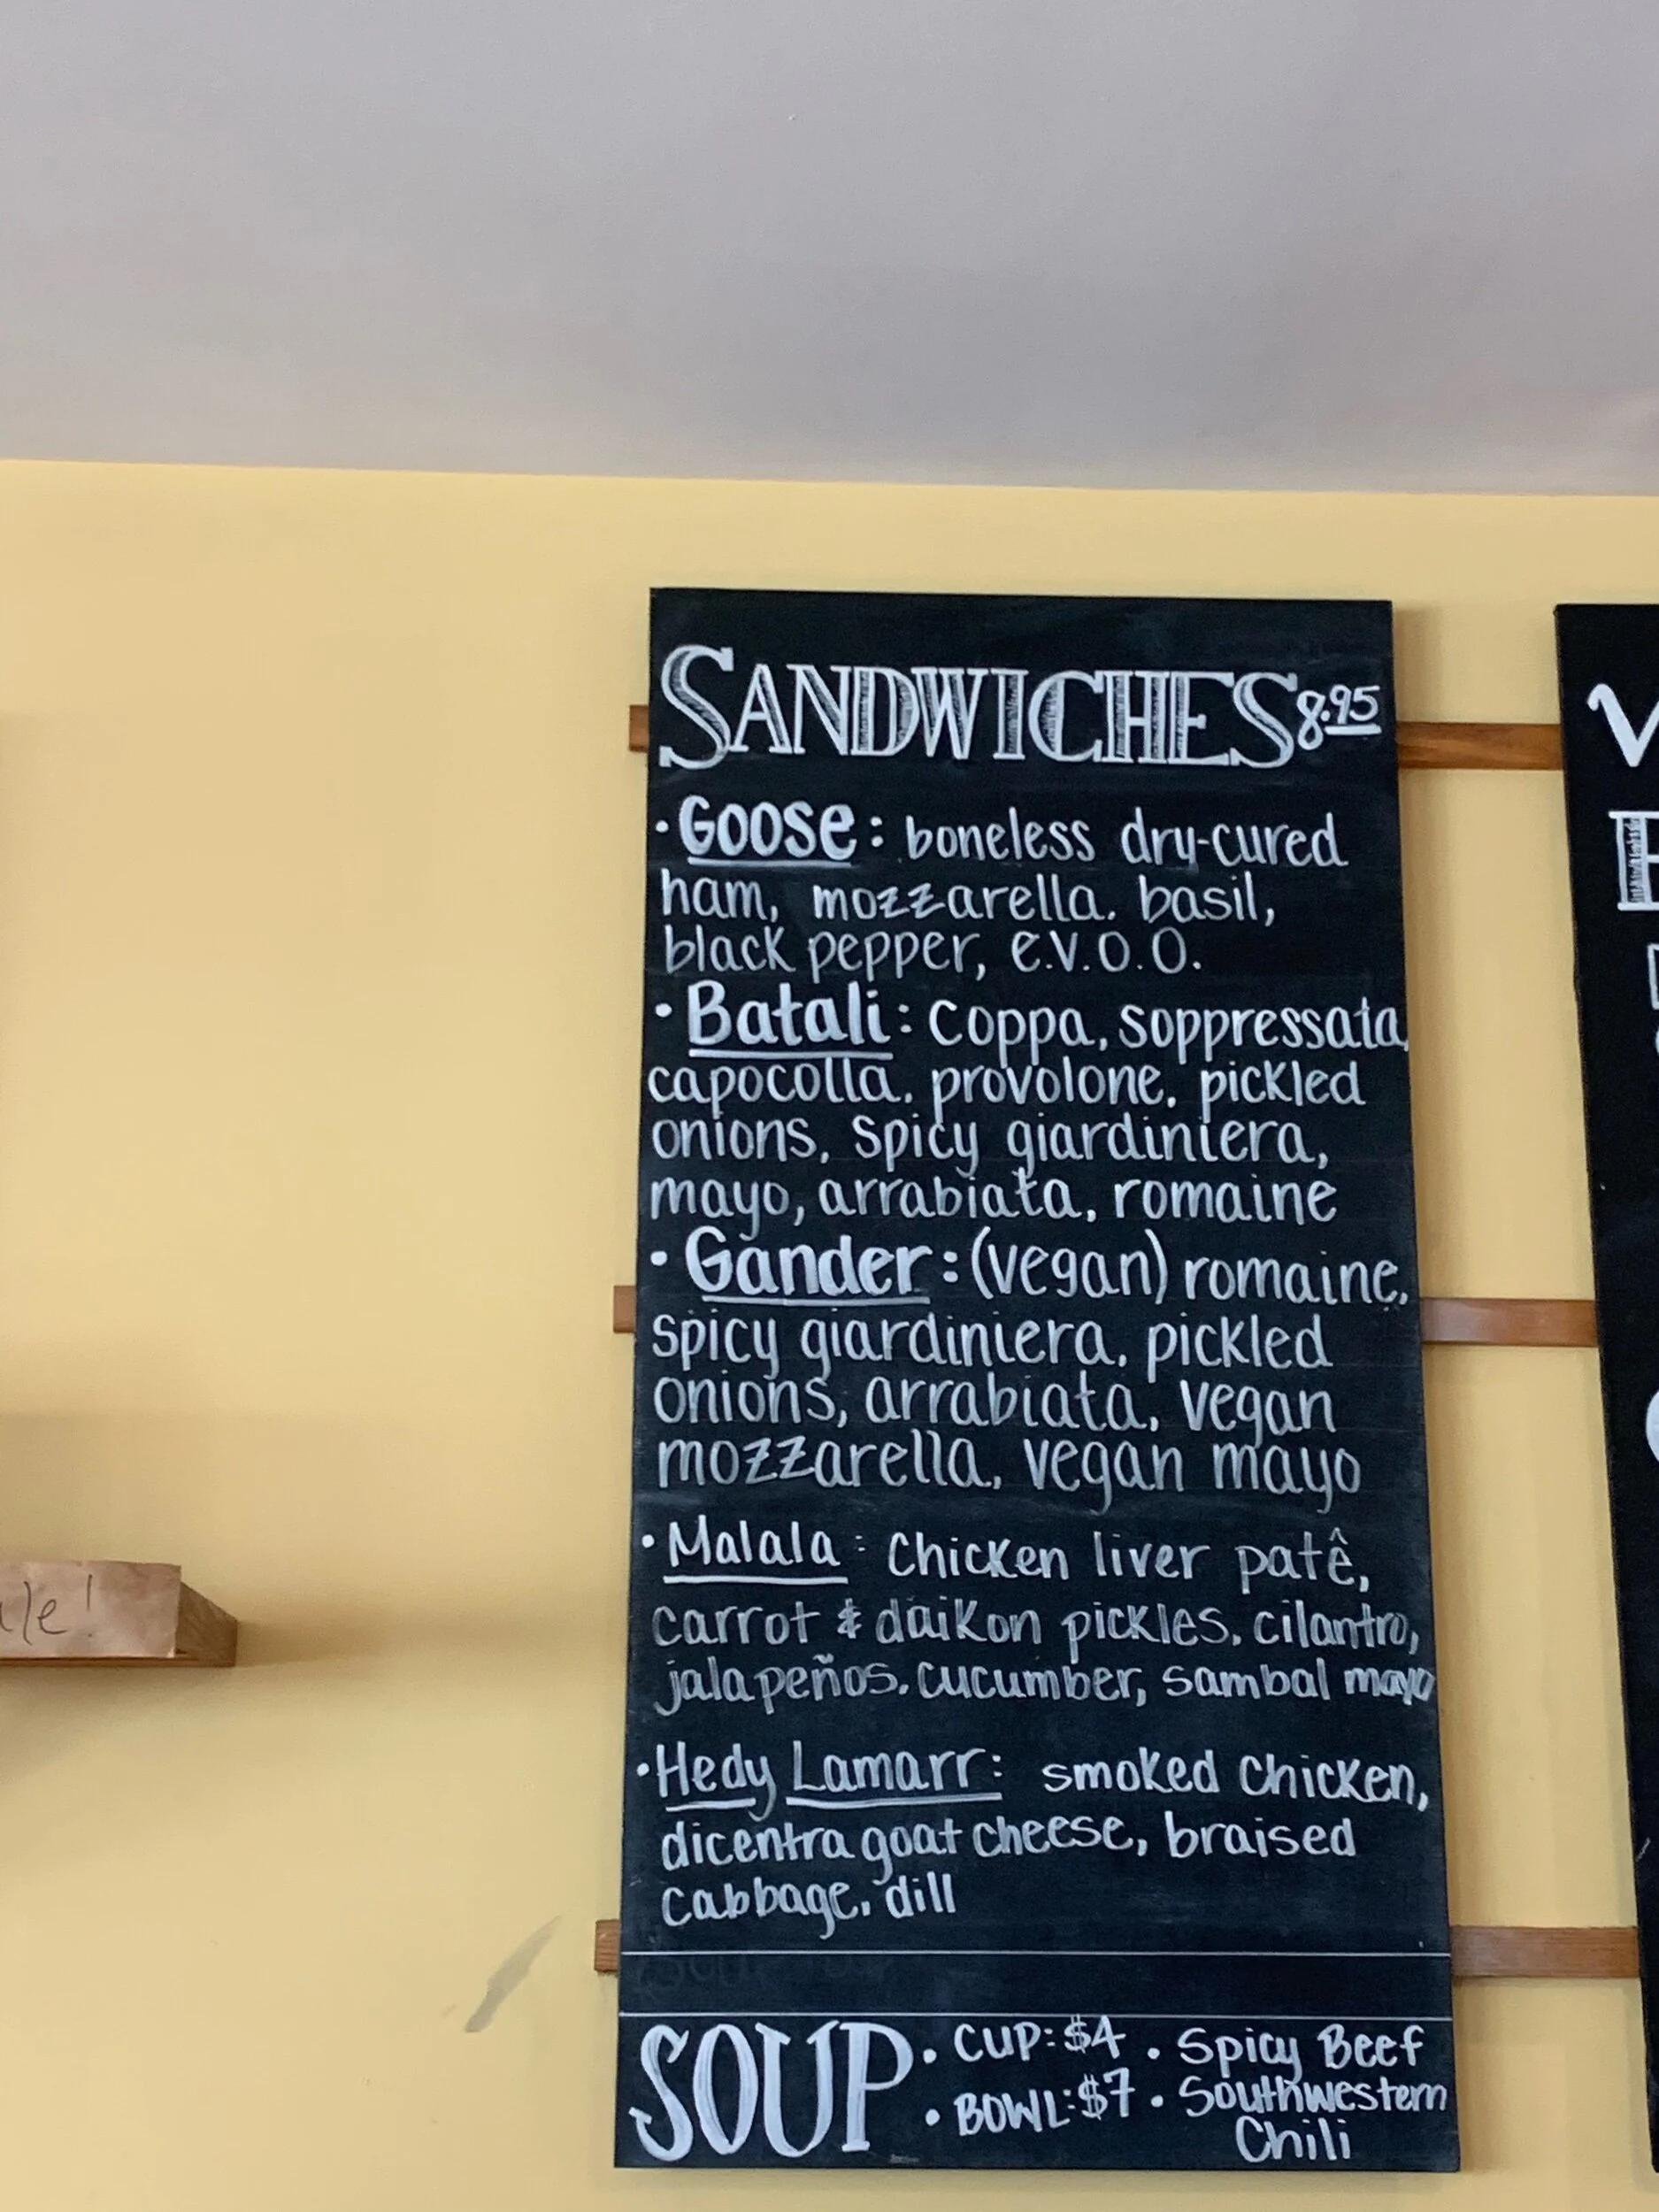 SANDWICHES 8.95
• Goose: boneless dry-cured
ham, mozzarella. basil,
black pepper, e.v.o.o.
• Batali: coppa, soppressata,
capocolla, provolone, pickled
onions, spicy giardiniera,
mayo, arrabiata, romaine
• Gander: (vegan) romaine,
spicy giardiniera, pickled
onions, arrabiata, vegan
mozzarella, vegan mayo
• Malala: Chicken liver patê,
carrot & daikon pickles, cilantro,
jalapeños, cucumber, sambal mayo
• Hedy Lamarr: smoked chicken,
dicentra goat cheese, braised
cabbage, dill
SOUP • CUP: $4 • Spicy Beef
• BOWL: $7 • Southwestern
Chili